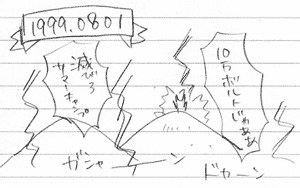 1999.0801
10万
ボルトじゃああ
滅びろ
サマーキャンプ
ドカーン
ガシャーーン